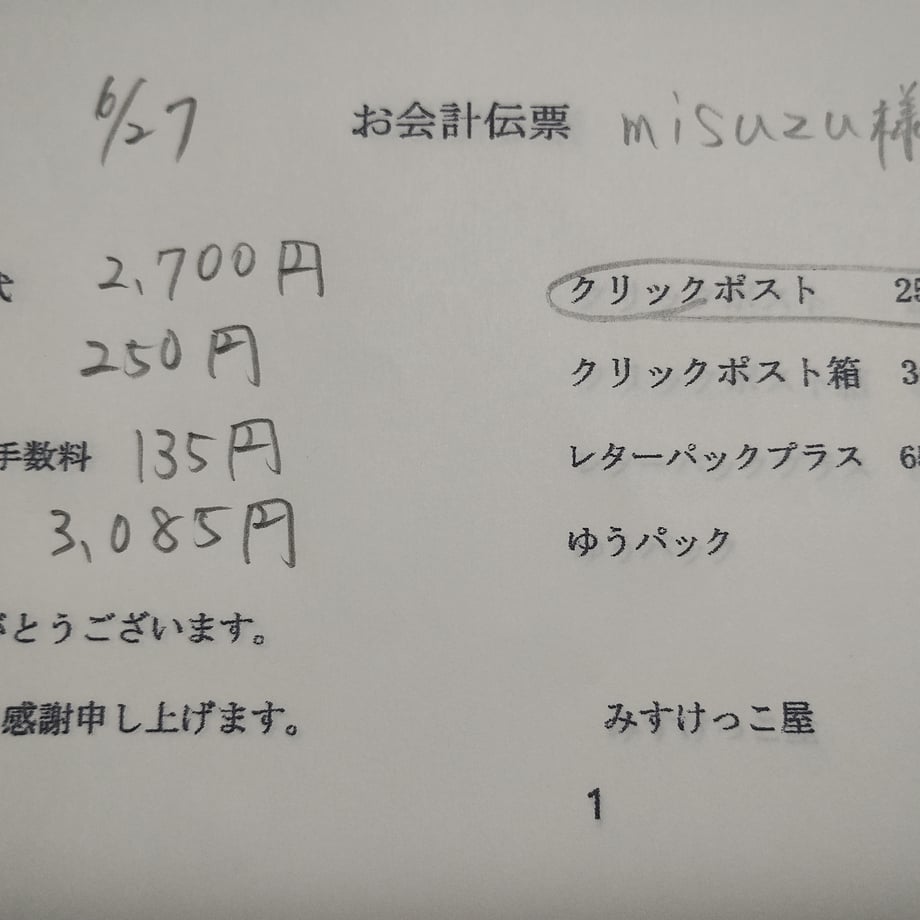 6/27 お会計伝票 misuzu様
代 2,700円
250円
手数料 135円
3,085円
がとうございます。
感謝申し上げます。
クリックポスト 25
クリックポスト箱 3
レターパックプラス 6
ゆうパック
みすけっこ屋
1